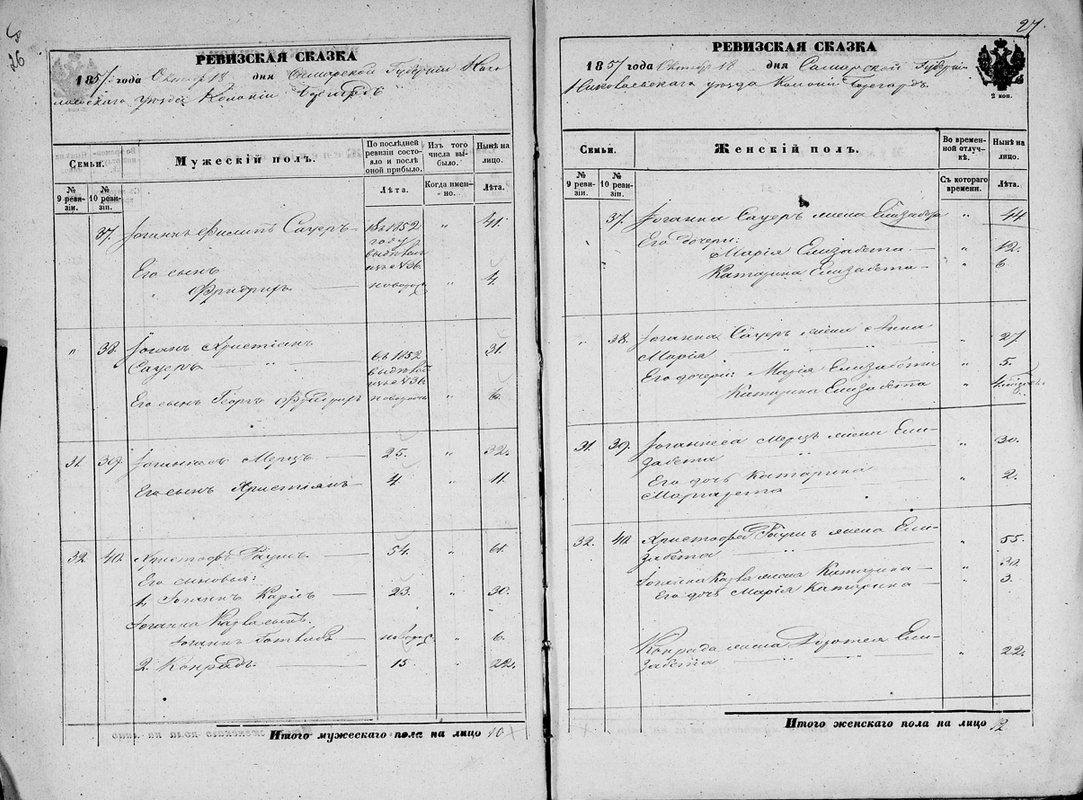 26
РЕВИЗСКАЯ СКАЗКА
1857 года Октяр 18 дня Самарской Губерніи
уезда Колоніи
Семьи.
Мужескій полъ.
По послѣдней ревизіи состояло и послѣ оной прибыло.
Изъ того числа выбыло.
Нынѣ на лицо.
№ 9 ревизіи.
№ 10 ревизіи.
Лѣта.
Когда именно.
Лѣта.
37. Іоганъ Филипъ Сауеръ 1852 " 41.
году
Его сынъ
Фридрихъ " 4.
" 38. Іоганъ Христіанъ 31.
Сауеръ въ 1852
Его сынъ Георгъ Фридрихъ " 6.
31. 39. Іоганнесъ Мерцъ 25. " 32.
Его сынъ Христіанъ 4. " 11.
32. 40. Христофъ Раушъ 54. " 61.
Его сыновья:
1, Іоганъ Карлъ 23. " 30.
Іоганна Карла сынъ
Іоганъ Готлибъ " 6.
2. Конрадъ 15. " 22.
Итого мужескаго пола на лицо 10
27.
РЕВИЗСКАЯ СКАЗКА
2 коп.
1857 года Октяр 18 дня Самарской Губерніи
Николаевскаго уезда Колоніи Борегардъ
Семьи.
Женскій полъ.
Во временной отлучкѣ.
Нынѣ на лицо.
№ 9 ревизіи.
№ 10 ревизіи.
Съ котораго времени.
Лѣта.
37. Іоганна Сауеръ жена Елизабета " 44
Его дочери:
Марія Елизабета " 12.
Катарина Елизабета " 6.
" 38. Іоганна Сауеръ жена Анна
Марія " 27
Его дочери: Марія Елизабета " 5.
Катарина Елизабета "
31. 39. Іоганнеса Мерцъ жена Ели-
забета " 30.
Его дочь Катарина
Маргарета " 2.
32. 40. Христофа Раушъ жена Ели-
забета " 55.
Іоганна Карла жена Катарина " 30.
Его дочь Марія Катарина " 3.
Конрада жена Доротея Ели-
забета " 22.
Итого женскаго пола на лицо 12